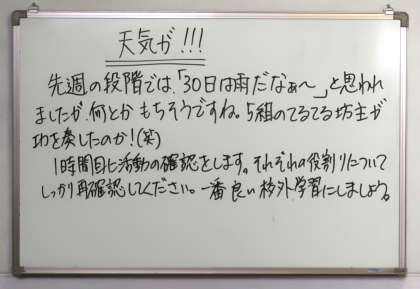 天気が!!!
先週の段階では、「30日は雨だなぁ〜」と思われ
ましたが、何とかもちそうですね。5組のてるてる坊主が
功を奏したのか!(笑)
1時間目に活動の確認をします。それぞれの役割りについて
しっかり再確認してください。一番良い校外学習にしましょう。